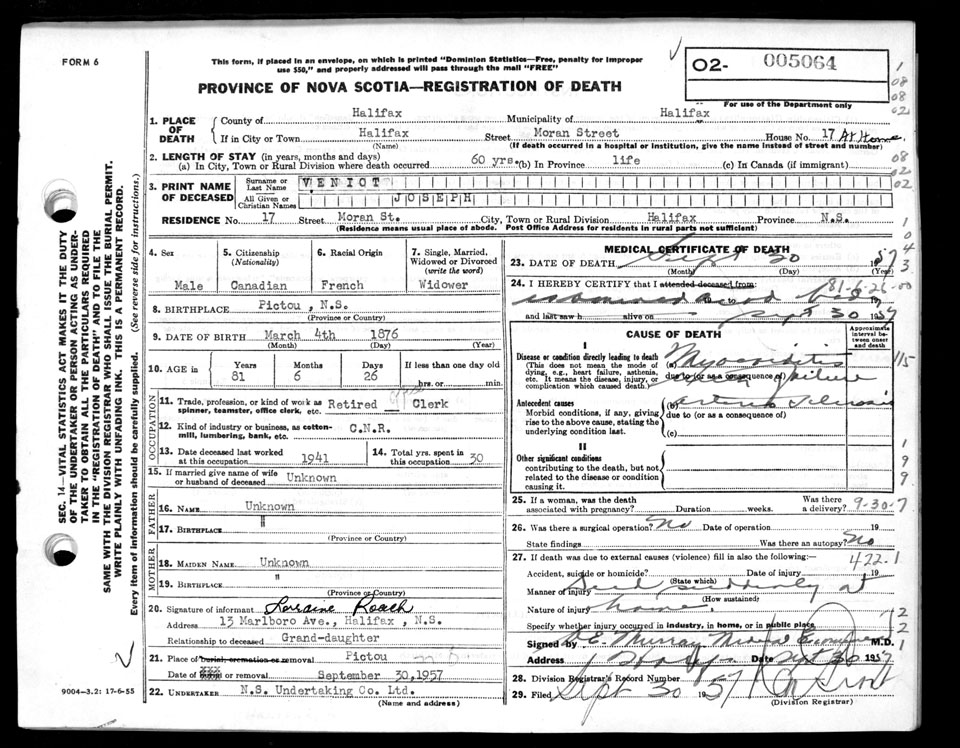 FORM 6
This form, if placed in an envelope, on which is printed "Dominion Statistics—Free, penalty for improper
use $50," and properly addressed will pass through the mail "FREE"
O2- 005064
For use of the Department only
PROVINCE OF NOVA SCOTIA—REGISTRATION OF DEATH
1. PLACE OF DEATH
County of Halifax Municipality of Halifax
If in City or Town Halifax Street Moran Street House No. 17 At Home
(Name) (If death occurred in a hospital or institution, give the name instead of street and number)
2. LENGTH OF STAY (in years, months and days)
(a) In City, Town or Rural Division where death occurred 60 yrs. (b) In Province life (c) In Canada (if immigrant)
3. PRINT NAME OF DECEASED
Surname or Last Name VENIOT
All Given or Christian Names JOSEPH
RESIDENCE No. 17 Street Moran St. City, Town or Rural Division Halifax Province N.S.
(Residence means usual place of abode. Post Office Address for residents in rural parts not sufficient)
4. Sex
Male
5. Citizenship (Nationality)
Canadian
6. Racial Origin
French
7. Single, Married, Widowed or Divorced (write the word)
Widower
8. BIRTHPLACE Pictou, N.S.
(Province or Country)
9. DATE OF BIRTH March 4th 1876
(Month) (Day) (Year)
10. AGE in Years Months Days If less than one day old
81 6 26 hrs. or min.
OCCUPATION
11. Trade, profession, or kind of work as spinner, teamster, office clerk, etc. Retired Clerk
12. Kind of industry or business, as cotton-mill, lumbering, bank, etc. C.N.R.
13. Date deceased last worked at this occupation 1941
14. Total yrs. spent in this occupation 30
15. If married give name of wife or husband of deceased Unknown
FATHER
16. NAME Unknown
17. BIRTHPLACE "
(Province or Country)
MOTHER
18. MAIDEN NAME Unknown
19. BIRTHPLACE "
(Province or Country)
20. Signature of informant Lorraine Roach
Address 13 Marlboro Ave., Halifax, N.S.
Relationship to deceased Grand-daughter
21. Place of burial, cremation or removal Pictou
Date of or removal September 30,1957
22. UNDERTAKER N.S. Undertaking Co. Ltd.
(Name and address)
MEDICAL CERTIFICATE OF DEATH
23. DATE OF DEATH Sept 30 1957
(Month) (Day) (Year)
24. I HEREBY CERTIFY that I attended deceased from:
81-6-26-00
to
and last saw h alive on Sept 30 1957
CAUSE OF DEATH
Approximate interval between onset and death
I
Disease or condition directly leading to death
(This does not mean the mode of dying, e.g., heart failure, asthenia, etc. It means the disease, injury, or complication which caused death.)
(a) Myocarditis
due to (or as a consequence of) failure
Antecedent causes
Morbid conditions, if any, giving rise to the above cause, stating the underlying condition last.
(b)
due to (or as a consequence of)
(c)
II
Other significant conditions
contributing to the death, but not related to the disease or condition causing it.
25. If a woman, was the death associated with pregnancy? Duration weeks. Was there a delivery? 9-30-7
26. Was there a surgical operation? No Date of operation 19
State findings Was there an autopsy? No
27. If death was due to external causes (violence) fill in also the following:— 422.1
Accident, suicide or homicide? Date of injury 19
(State which)
Manner of injury Died suddenly at
(How sustained)
Nature of injury home.
Specify whether injury occurred in industry, in home, or in public place
Signed by E. Murray Medical Examiner M.D.
Address Date Sept 30 1957
28. Division Registrar's Record Number
29. Filed Sept 30 1957
(Division Registrar)
SEC. 14—VITAL STATISTICS ACT MAKES IT THE DUTY
OF THE UNDERTAKER OR PERSON ACTING AS UNDER-
TAKER TO OBTAIN ALL THE PARTICULARS REQUIRED
IN THE "REGISTRATION OF DEATH" AND TO FILE THE
SAME WITH THE DIVISION REGISTRAR WHO SHALL ISSUE THE BURIAL PERMIT.
WRITE PLAINLY WITH UNFADING INK. THIS IS A PERMANENT RECORD.
Every item of information should be carefully supplied. (See reverse side for instructions.)
9004—3.2: 17-6-55